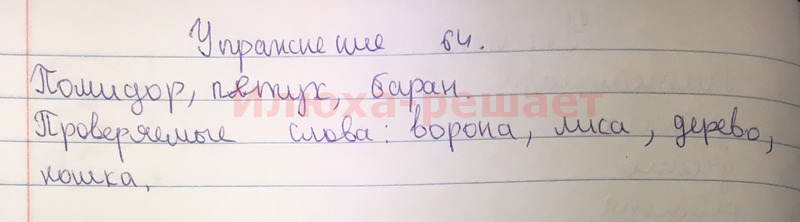 Упражнение 64.
Помидор, петух, баран.
илюха-решает
Проверяемые слова: ворона, лиса, дерево,
кошка,